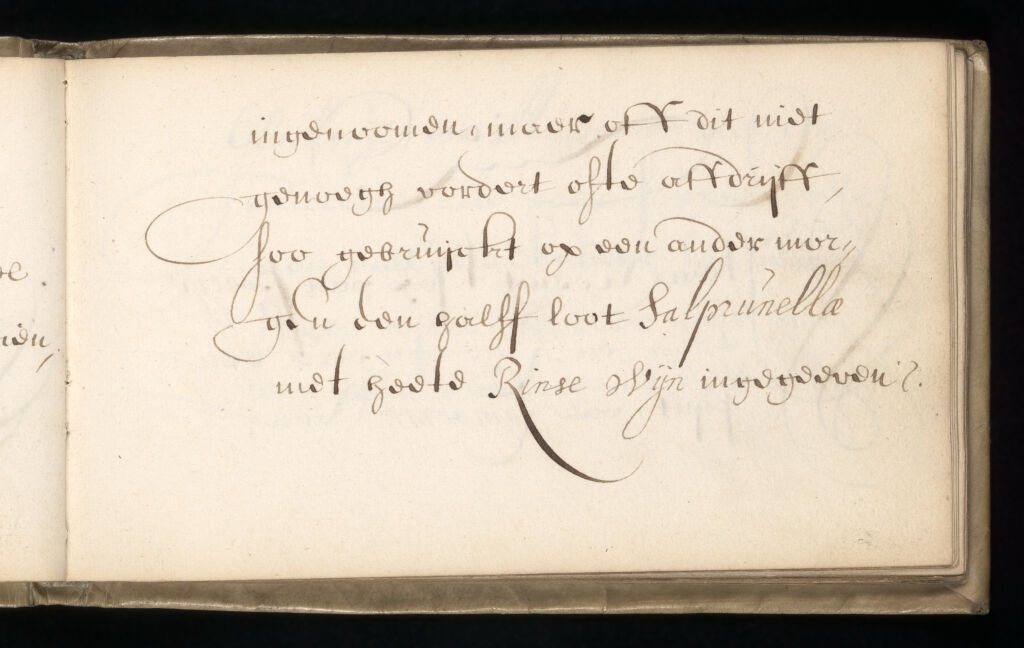 ingenoomen, maer off dit niet
genoegh vordert ofte affdrijft,
soo gebruijckt op een ander mor-
gen een halff loot Salprunellæ
met heete Rinse Wijn ingegeeven.